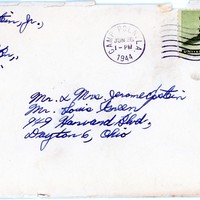 Jr.,
CAMP POLK, LA.
JUN
1-PM
1944
Mr. & Mrs. Jerome Epstein
Mr. Louis Green
849 Harvard Blvd.,
Dayton 6, Ohio